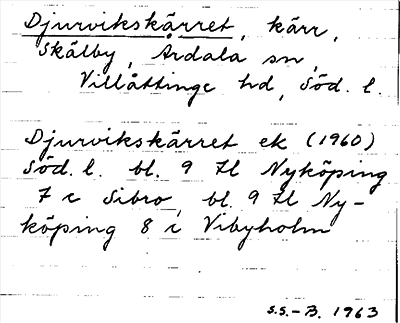 Djurvikskärret, kärr,
Skälby, Årdala sn,
Villåttinge hd, Söd. l.
Djurvikskärret ek (1960)
Söd. l. bl. 9 H Nyköping
7 c Sibro, bl. 9 H Ny-
köping 8 c Vibyholm
S.S.-B. 1963